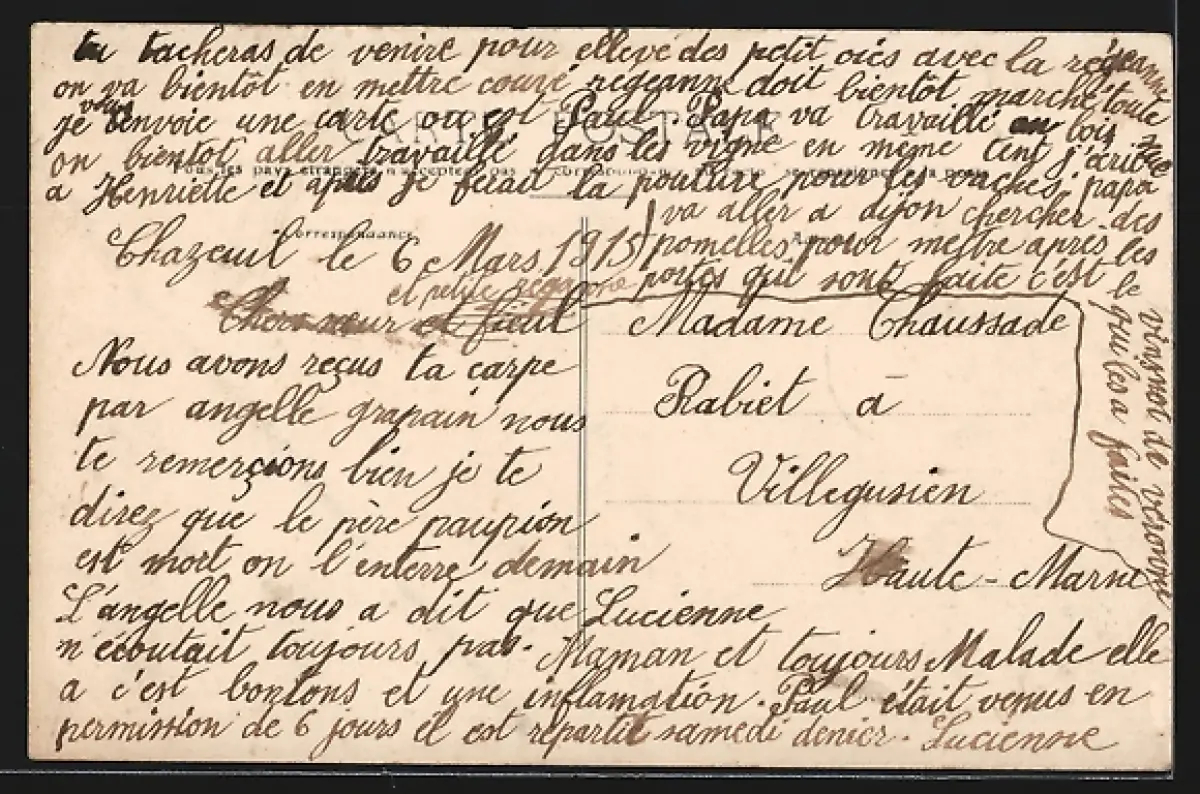 tu tacheras de venire pour ellevé des petit oiés avec la régeanne
on va bientôt en mettre couvé régeanne doit bientôt marché toute
je vous envoie une carte ou est Paul. Papa va travaillé au bois
on bientot aller travaillé dans les vigne en meme tent j'écrit
a Henriette et après je ferai la pouture pour les vaches, papa
va aller a dijon chercher des
pomelles pour mettre après les
portes qui sont faite c'est le
vignot de véronne
qui les a faites
CARTE POSTALE
Correspondance
Chazeuil le 6 Mars 1915
et petite régeanne
Chere sœur et fieul
Nous avons reçus ta carpe
par angelle grapain nous
te remerçions bien je te
direz que le père paupion
est mort on l'enterre demain
L'angelle nous a dit que Lucienne
n'écoutait toujours pas. Maman et toujours Malade elle
a c'est boutons et une inflamation. Paul était venus en
permission de 6 jours il est repartit samedi denier. Lucienne
Madame Chaussade
Rabiet à
Villegusien
Haute-Marne